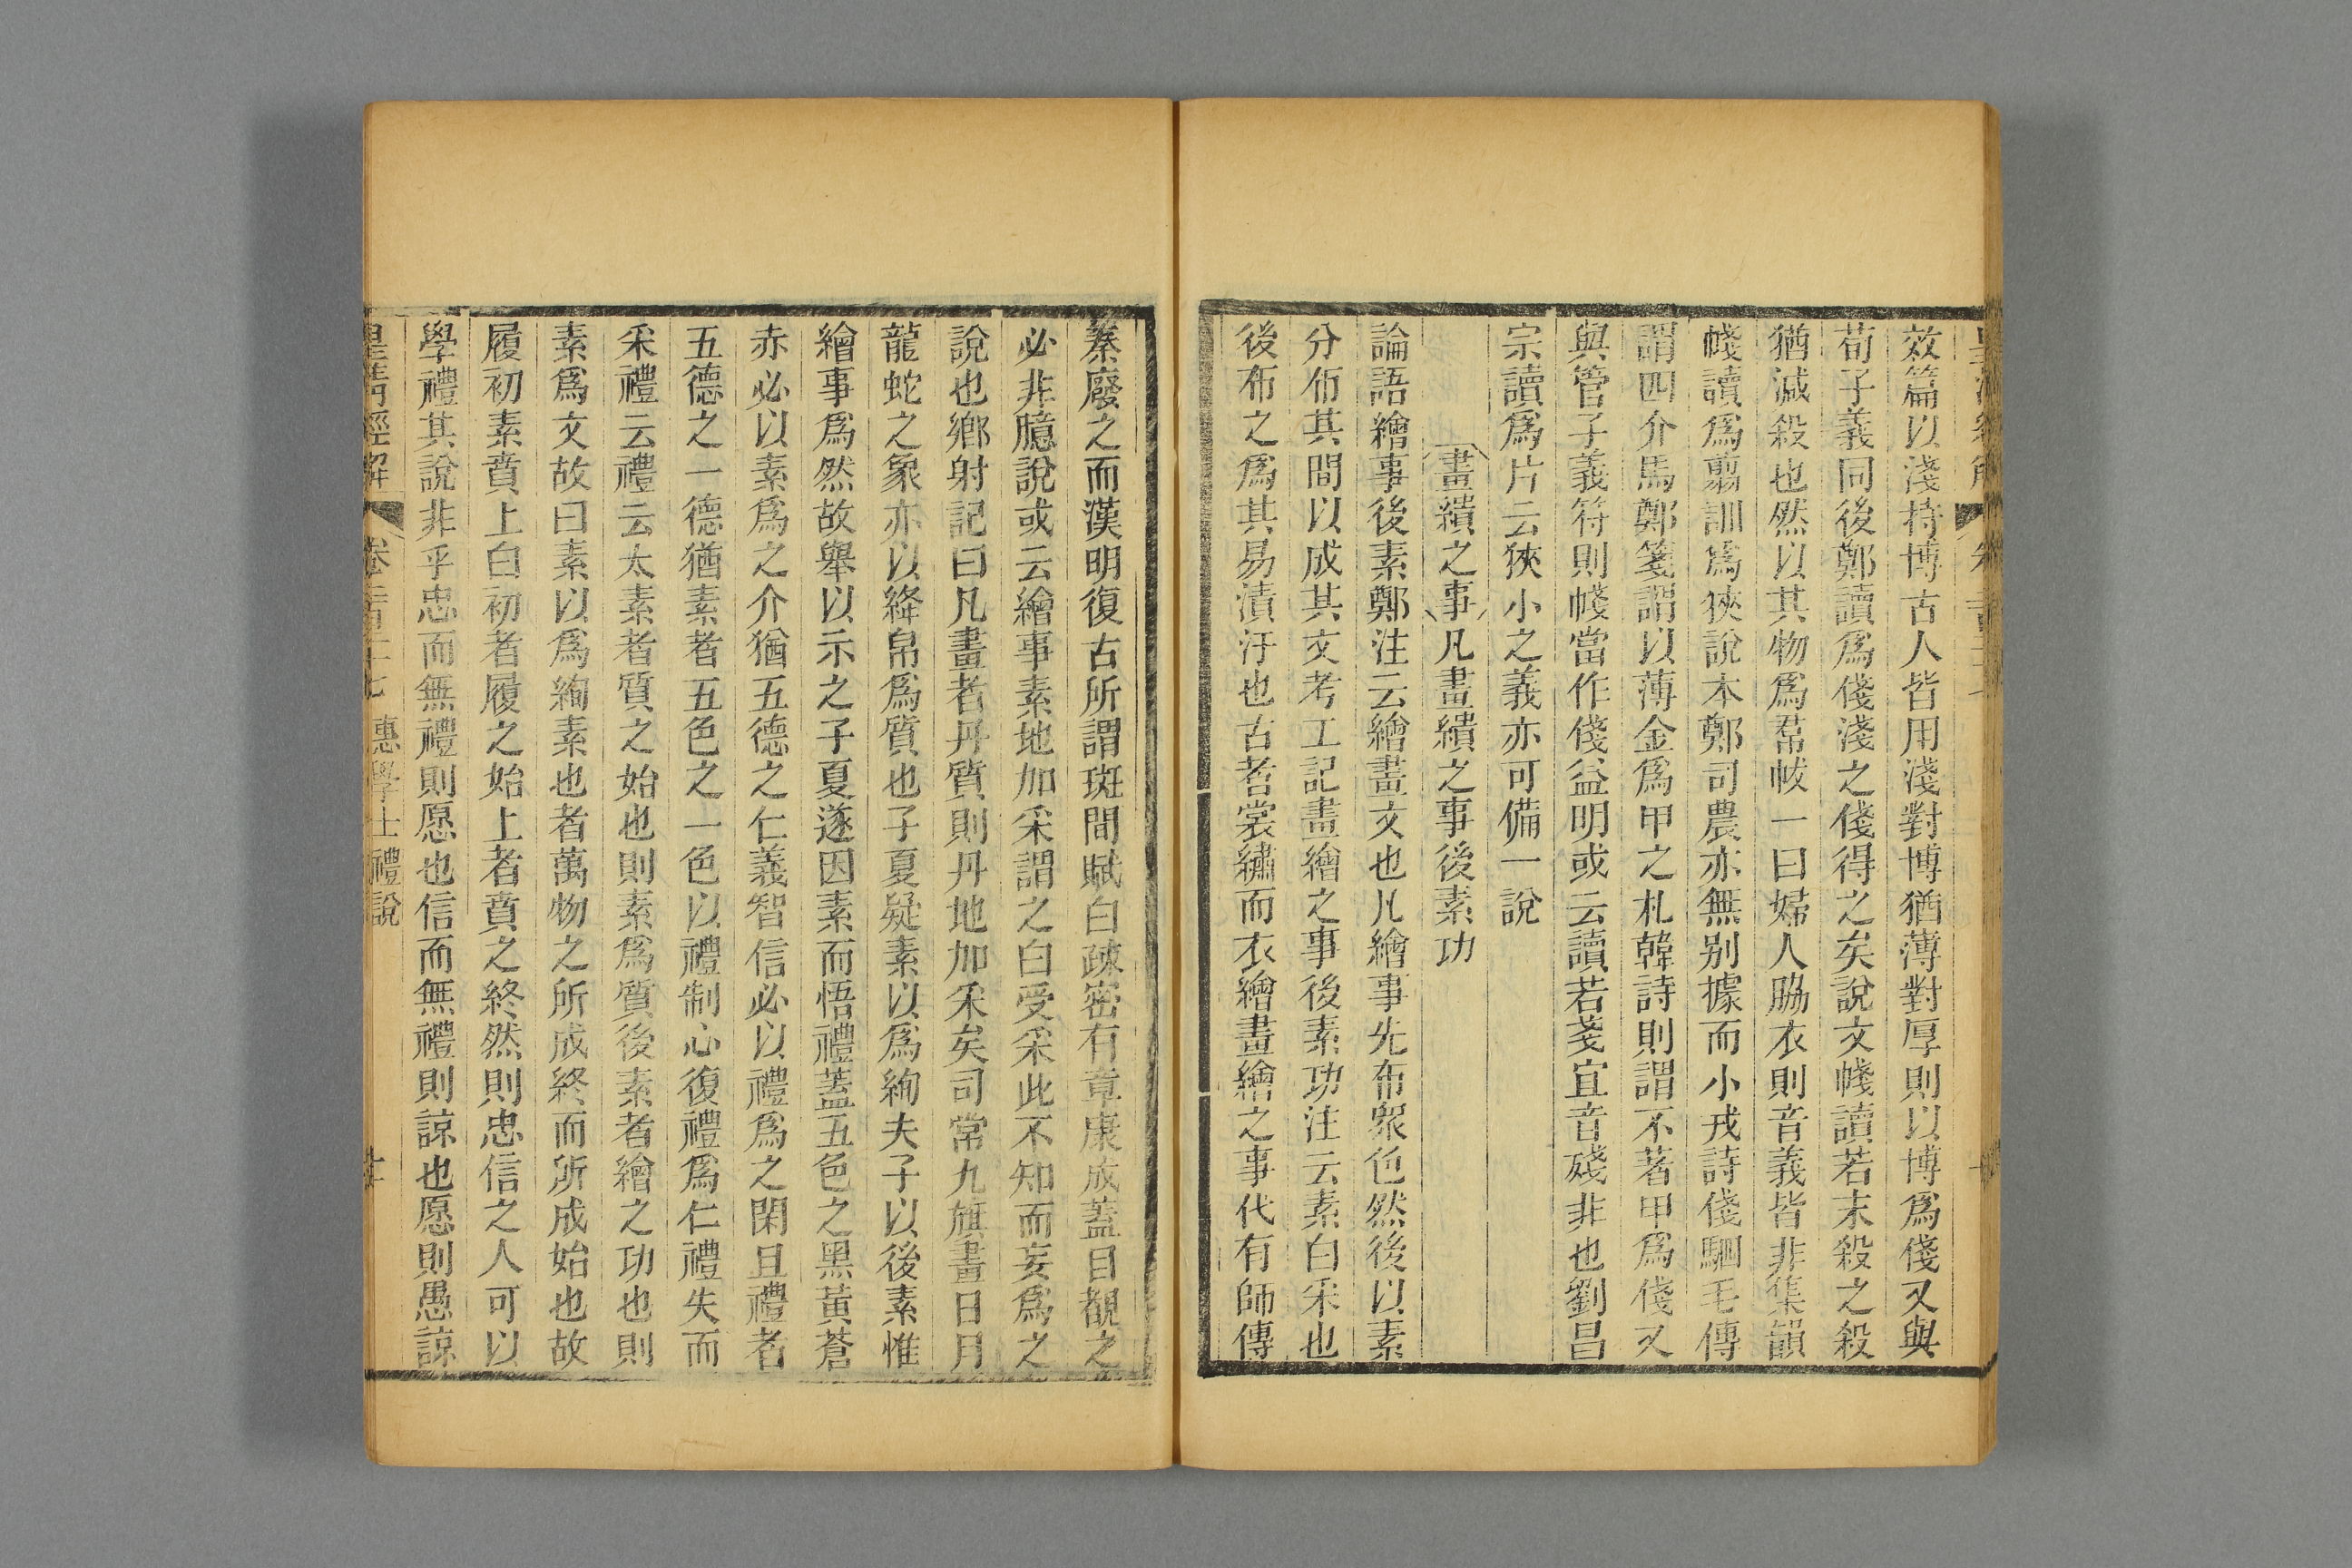 效篇以淺持博古人皆用淺對博猶薄對厚則以博爲俴又與
荀子義同後鄭讀爲俴淺之俴得之矣說文帴讀若末殺之殺
猶減殺也然以其物爲帬帗一曰婦人脇衣則音義皆非集韻
帴讀爲翦訓爲狹說本鄭司農亦無别據而小戎詩俴駟毛傳
謂四介馬鄭箋謂以薄金爲甲之札韓詩則謂不著甲爲俴又
與管子義符則帴當作俴益明或云讀若戔宜音殘非也劉昌
宗讀爲片云狹小之義亦可備一說
畫繢之事凡畫繢之事後素功
論語繪事後素鄭注云繪畫文也凡繪事先布衆色然後以素
分布其間以成其文考工記畫繪之事後素功注云素白采也
後布之爲其易漬汙也古者裳繡而衣繪畫繪之事代有師傳
秦廢之而漢明復古所謂斑間賦白疎密有章康成蓋目覩之
必非臆說或云繪事素地加采謂之白受采此不知而妄爲之
說也鄉射記曰凡畫者丹質則丹地加采矣司常九旗畫日月
龍蛇之象亦以絳帛爲質也子夏疑素以爲絢夫子以後素惟
繪事爲然故舉以示之子夏遂因素而悟禮蓋五色之黑黃蒼
赤必以素爲之介猶五德之仁義智信必以禮爲之閑且禮者
五德之一德猶素者五色之一色以禮制心復禮爲仁禮失而
采禮云禮云太素者質之始也則素爲質後素者繪之功也則
素爲文故曰素以爲絢素也者萬物之所成終而所成始也故
履初素賁上白初者履之始上者賁之終然則忠信之人可以
學禮其說非乎忠而無禮則愿也信而無禮則諒也愿則愚諒
皇清經解 卷二百二十七 惠學士禮說